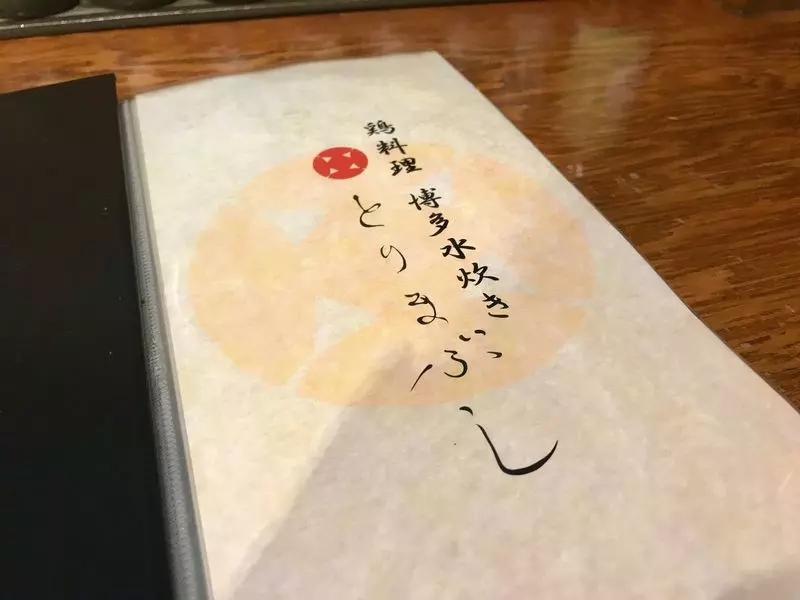 鶏料理 博多水炊き
とりまぶし